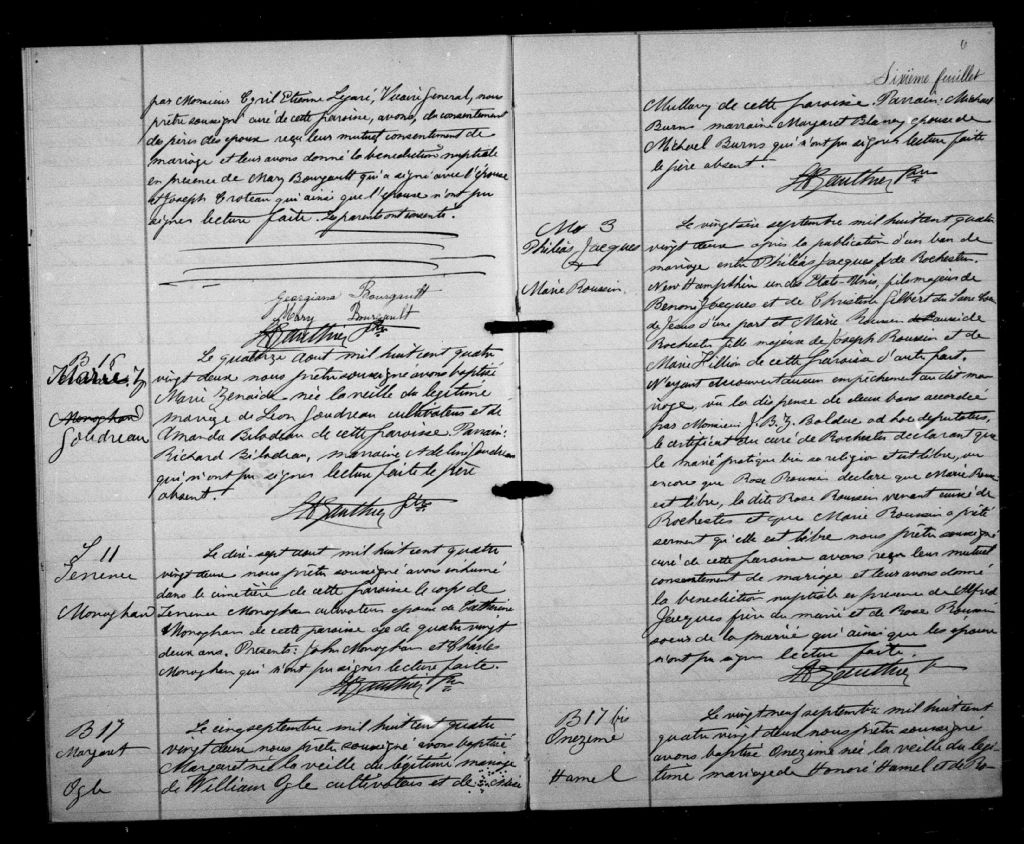 par Monsieur Cyril Etienne Legaré, Vicaire General, nous
prêtre soussigné curé de cette paroisse, avons, du consentement
des pères des epoux reçu leur mutuel consentement de
mariage et leur avons donné la benediction nuptiale
en presence de Mary Bourgault qui a signé avec l'épouse
et Joseph Croteau qui ainsi que l'epouse n'ont pu
signer lecture faite. Les parents ont consenti.
Georgiana Bourgault
Mary Bourgault
Gauthier Ptre
B 16
Marie Z.
Monoghand
Goudreau
Le quatorze aout mil huit cent quatre
vingt deux nous prêtre soussigné avons baptisé
Marie Zenaide née la veille du légitime
mariage de Léon Goudreau cultivateur et de
Amanda Bilodeau de cette paroisse. Parrain:
Richard Bilodeau, marraine Adeline Goudreau
qui n'ont pu signer lecture faite le père
absent.
Gauthier Ptre
S 11
Terrence
Monoghan
Le dix-sept aout mil huit cent quatre
vingt deux nous prêtre soussigné avons inhumé
dans le cimetière de cette paroisse le corps de
Terrence Monoghan cultivateur epoux de Catherine
Monoghan de cette paroisse age de quatre vingt
deux ans. Presents: John Monoghan et Charles
Monoghan qui n'ont pu signer lecture faite.
Gauthier Ptre
B 17
Margaret
Ogle
Le cinq septembre mil huit cent quatre
vingt deux nous prêtre soussigné avons baptisé
Margaret née la veille du légitime mariage
de William Ogle cultivateur et de
6
Sixième feuillet
de cette paroisse. Parrain: Michael
Burns marraine Margaret Blaney epouse de
Michael Burns qui n'ont pu signer lecture faite
le père absent.
Gauthier Ptre
3
Philias Jacques
&
Marie Roussin
Le vingt septembre mil huit cent quatre
vingt deux après la publication d'un ban de
mariage entre Philias Jacques de Rochester
New Hampshire un des Etats-Unis, fils majeur de
Benoni Jacques et de Christine Gilbert du Sacré Coeur
de Jesus d'une part et Marie Roussin aussi de
Rochester fille majeure de Joseph Roussin et de
Marie de cette paroisse d'autre part.
N'ayant decouvert aucun empêchement au dit ma-
riage, vu la dispense de deux bans accordée
par Monsieur J. B. Z. Bolduc ad hoc deputatus,
le certificat du curé de Rochester declarant que
le marié pratique bien sa religion et est libre, ou
encore que Rose Roussin declare que Marie Roussin
est libre, la dite Rose Roussin venant aussi de
Rochester et que Marie Roussin a prêté
serment qu'elle est libre nous prêtre soussigné
curé de cette paroisse avons reçu leur mutuel
consentement de mariage et leur avons donné
la benediction nuptiale en presence de Alfred
Jacques frère du marié et de Rose Roussin
soeur de la mariée qui ainsi que les epoux
n'ont pu signer lecture faite.
Gauthier
B 17 bis
Onezime
Hamel
Le vingt neuf septembre mil huit cent
quatre vingt deux nous prêtre soussigné
avons baptisé Onezime né la veille du légi-
time mariage de Honoré Hamel et de